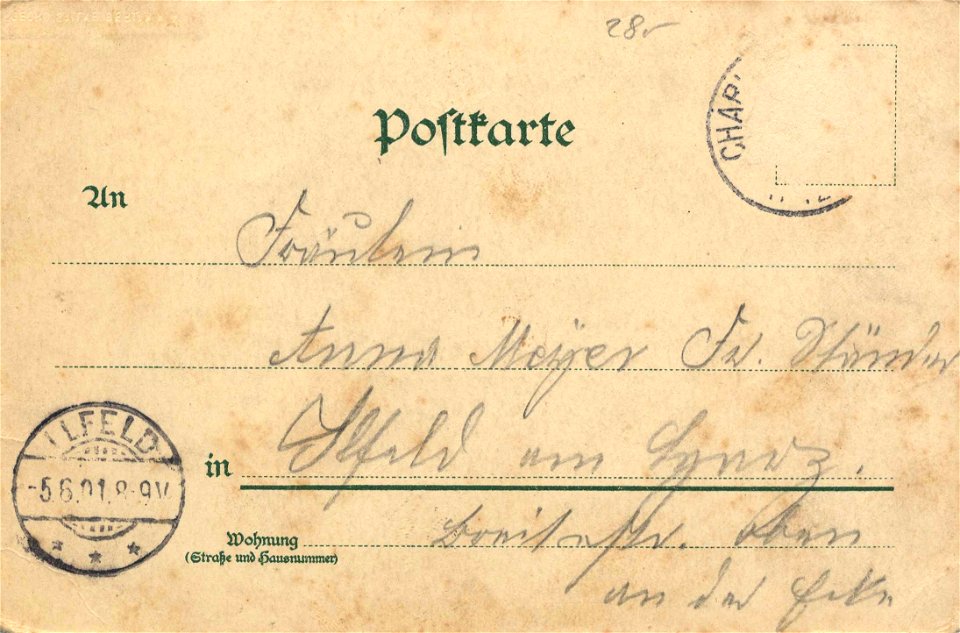 28
CHAR
Postkarte
An
Fräulein
Anna Meyer Fr. Ständer
ILFELD
-5.6.01.8-9V.
* * *
in Ilfeld am Harz.
Wohnung Breitestr. oben
(Straße und Hausnummer)
an der Ecke